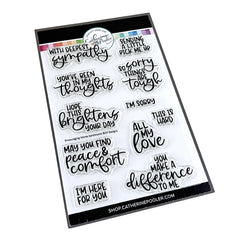 WITH DEEPEST
sympathy
SENDING
A LITTLE
PICK ME UP
YOU'VE BEEN
IN MY
thoughts
SO sorry
THINGS ARE
tough
HOPE
THIS
brightens
YOUR DAY
I'M SORRY
THIS IS
HARD
ALL
my
love
MAY YOU FIND
peace &
comfort
YOU
MAKE A
difference
TO ME
I'M HERE
FOR YOU
SHOP.CATHERINEPOOLER.COM